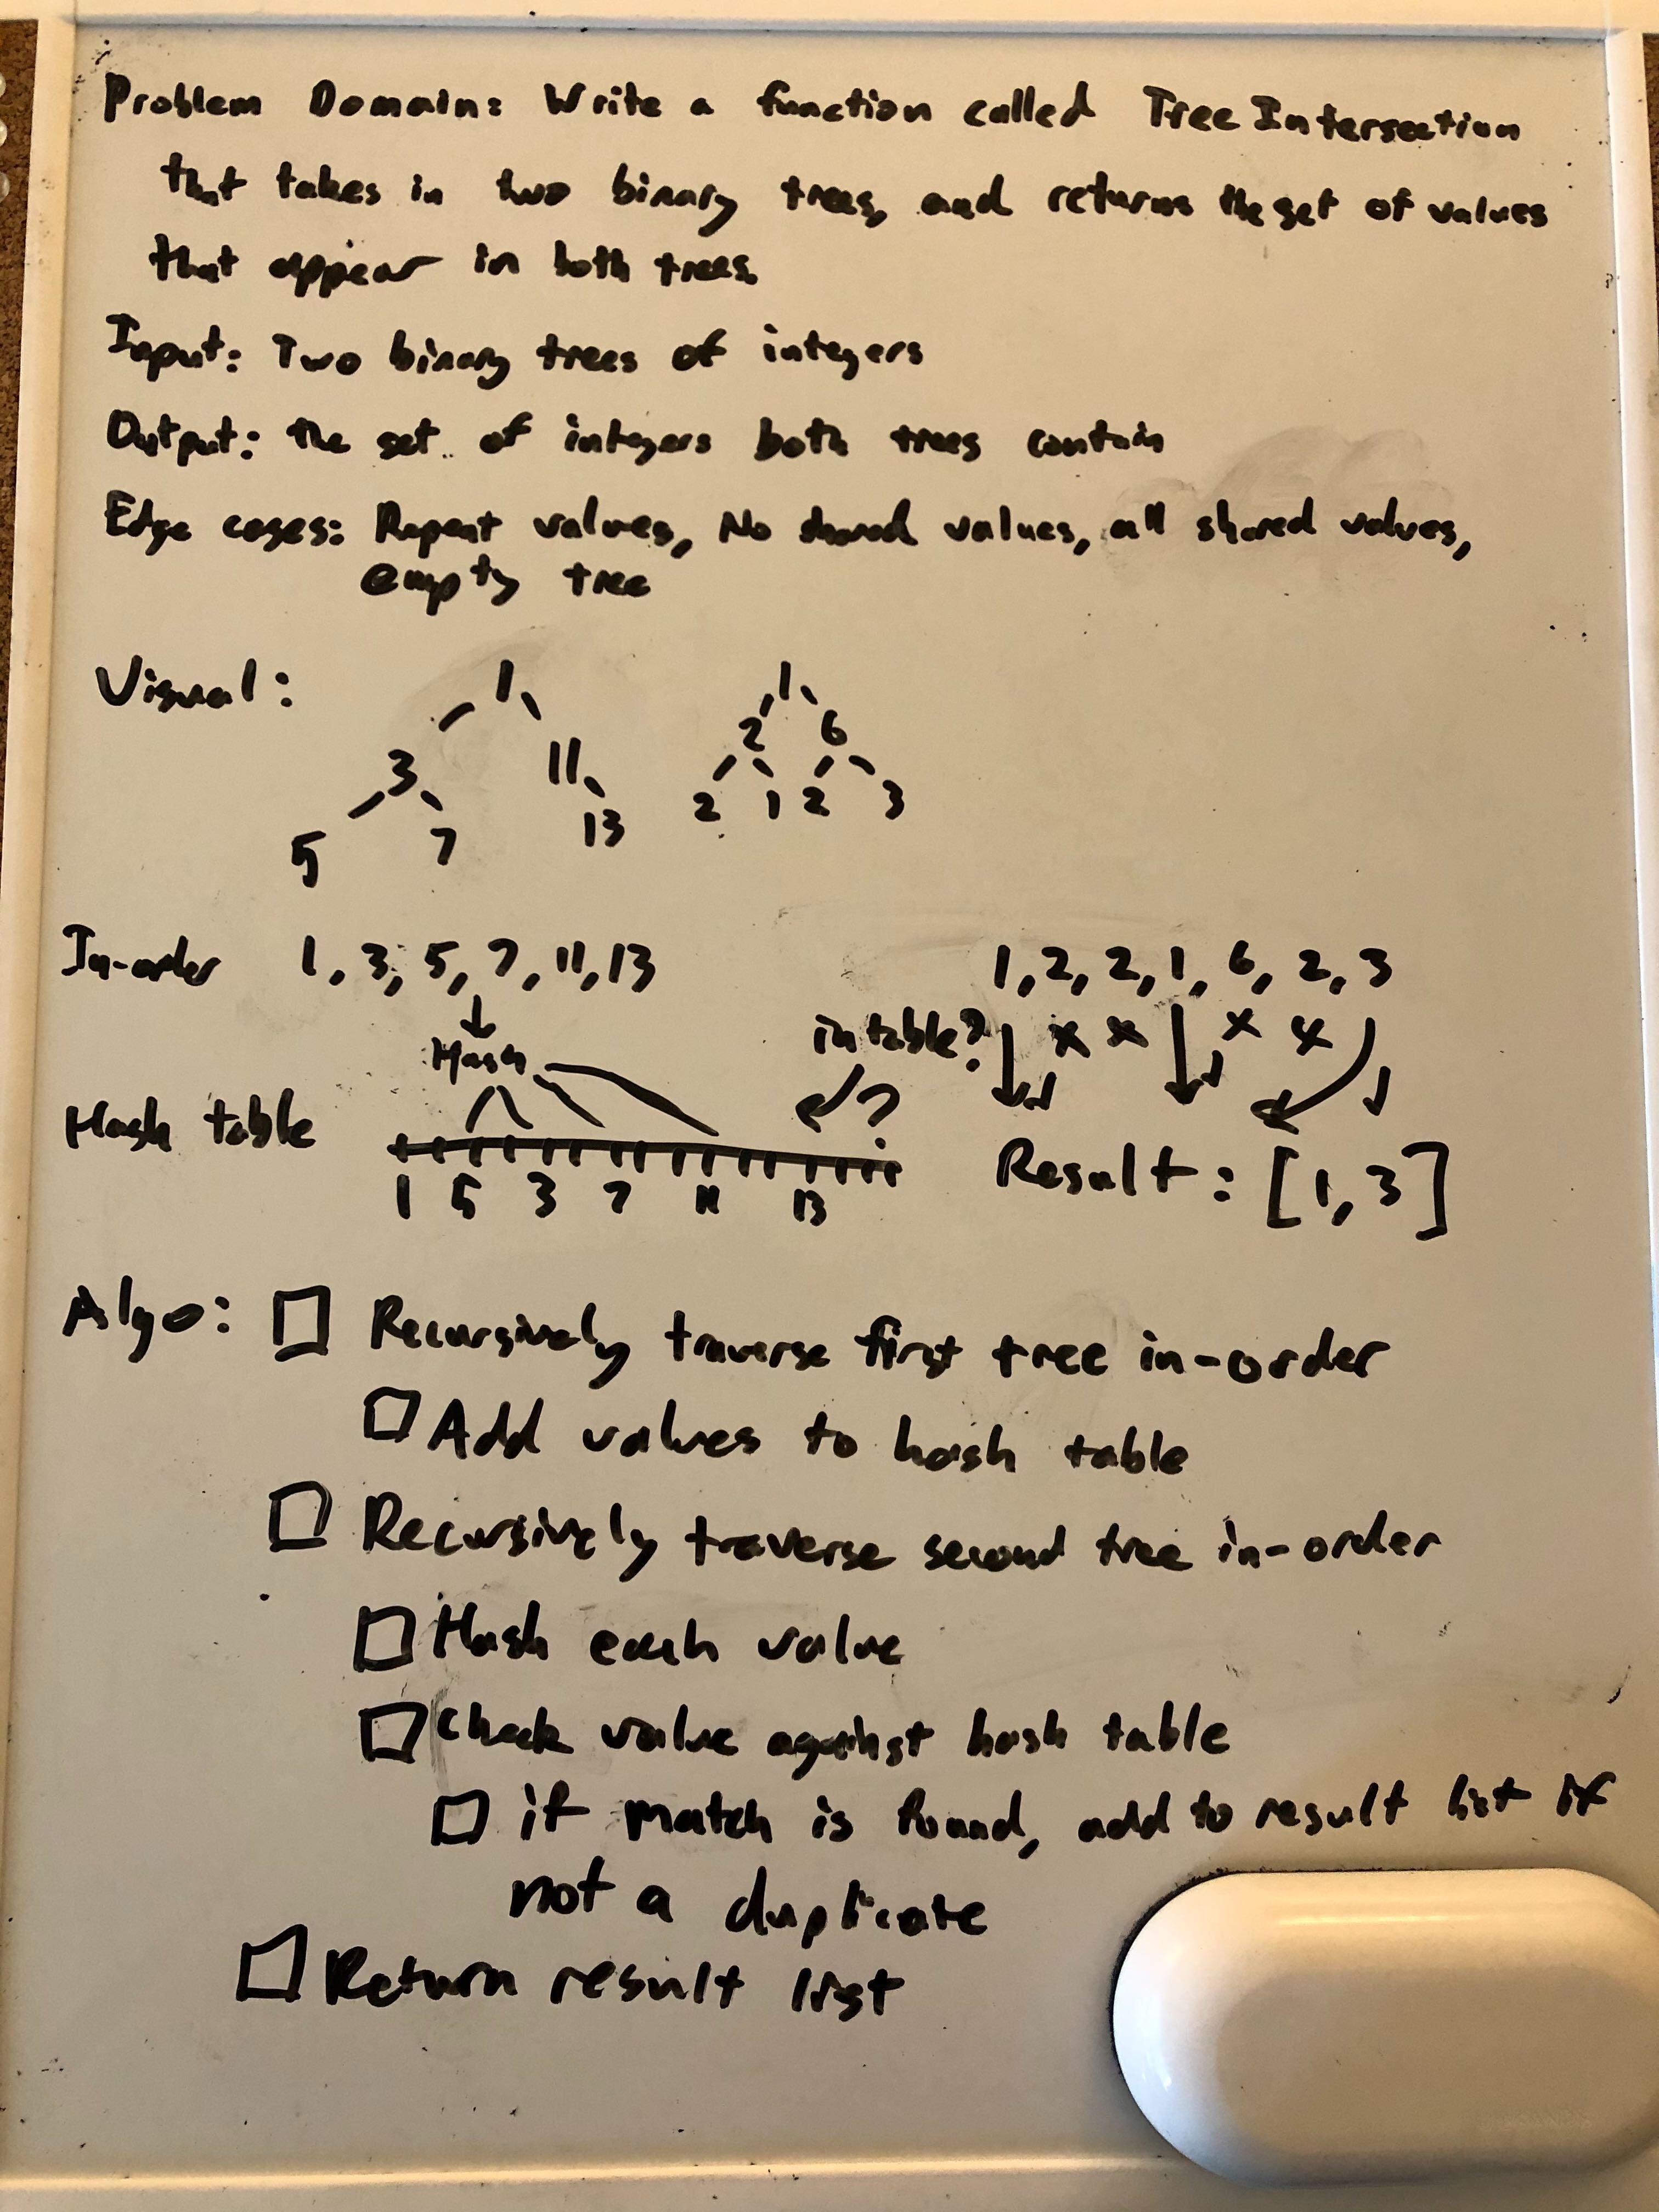 Problem Domain: Write a function called Tree Intersection
that takes in two binary trees, and returns the set of values
that appear in both trees.
Input: Two binary trees of integers
Output: the set of integers both trees contain
Edge cases: Repeat values, No shared values, all shared values,
empty tree
Visual:
1 1
2 6
3 11
2 1 2 3
5 7 13
In-order 1, 3, 5, 7, 11, 13 1, 2, 2, 1, 6, 2, 3
Hash in table? x x x x
?
Hash table
1 5 3 7 11 13 Result: [1, 3]
Algo: Recursively traverse first tree in-order
Add values to hash table
Recursively traverse second tree in-order
Hash each value
check value against hash table
if match is found, add to result list if
not a duplicate
Return result list